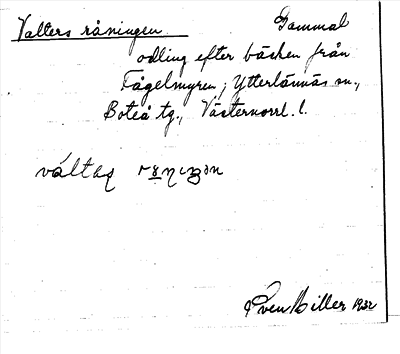 Valters råningen Gammal
odling efter bäcken från
Fågelmyren; Ytterlännäs sn.,
Boteå tg., Västernorrl. l.
váltaʂ
Sven Hiller 1932